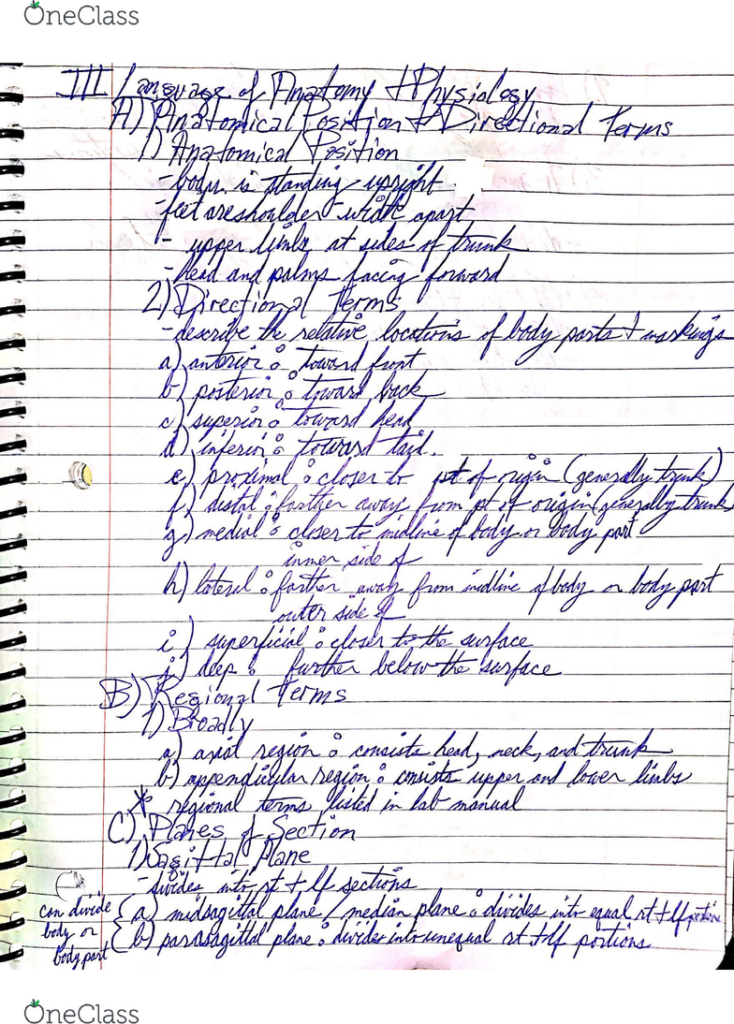 OneClass
III Language of Anatomy + Physiology
A) Anatomical Position + Directional Terms
1) Anatomical Position
- body is standing upright
- feet are shoulder-width apart
- upper limbs at sides of trunk
- head and palms facing forward
2) Directional Terms
- describe the relative locations of body parts + markings
a) anterior : toward front
b) posterior : toward back
c) superior : toward head
d) inferior : toward tail.
e) proximal : closer to pt of origin (generally trunk)
f) distal : farther away from pt of origin (generally trunk)
g) medial : closer to midline of body or body part
inner side of
h) lateral : farther away from midline of body or body part
outer side of
i) superficial : closer to the surface
j) deep : further below the surface
B) Regional Terms
1) Broadly
a) axial region : consists head, neck, and trunk
b) appendicular region : consists upper and lower limbs
* regional terms listed in lab manual
C) Planes of Section
1) Sagittal Plane
- divides into rt + lf sections
can divide body or body part { a) midsagittal plane / median plane : divides into equal rt + lf portions
{ b) parasagittal plane : divides into unequal rt + lf portions
OneClass